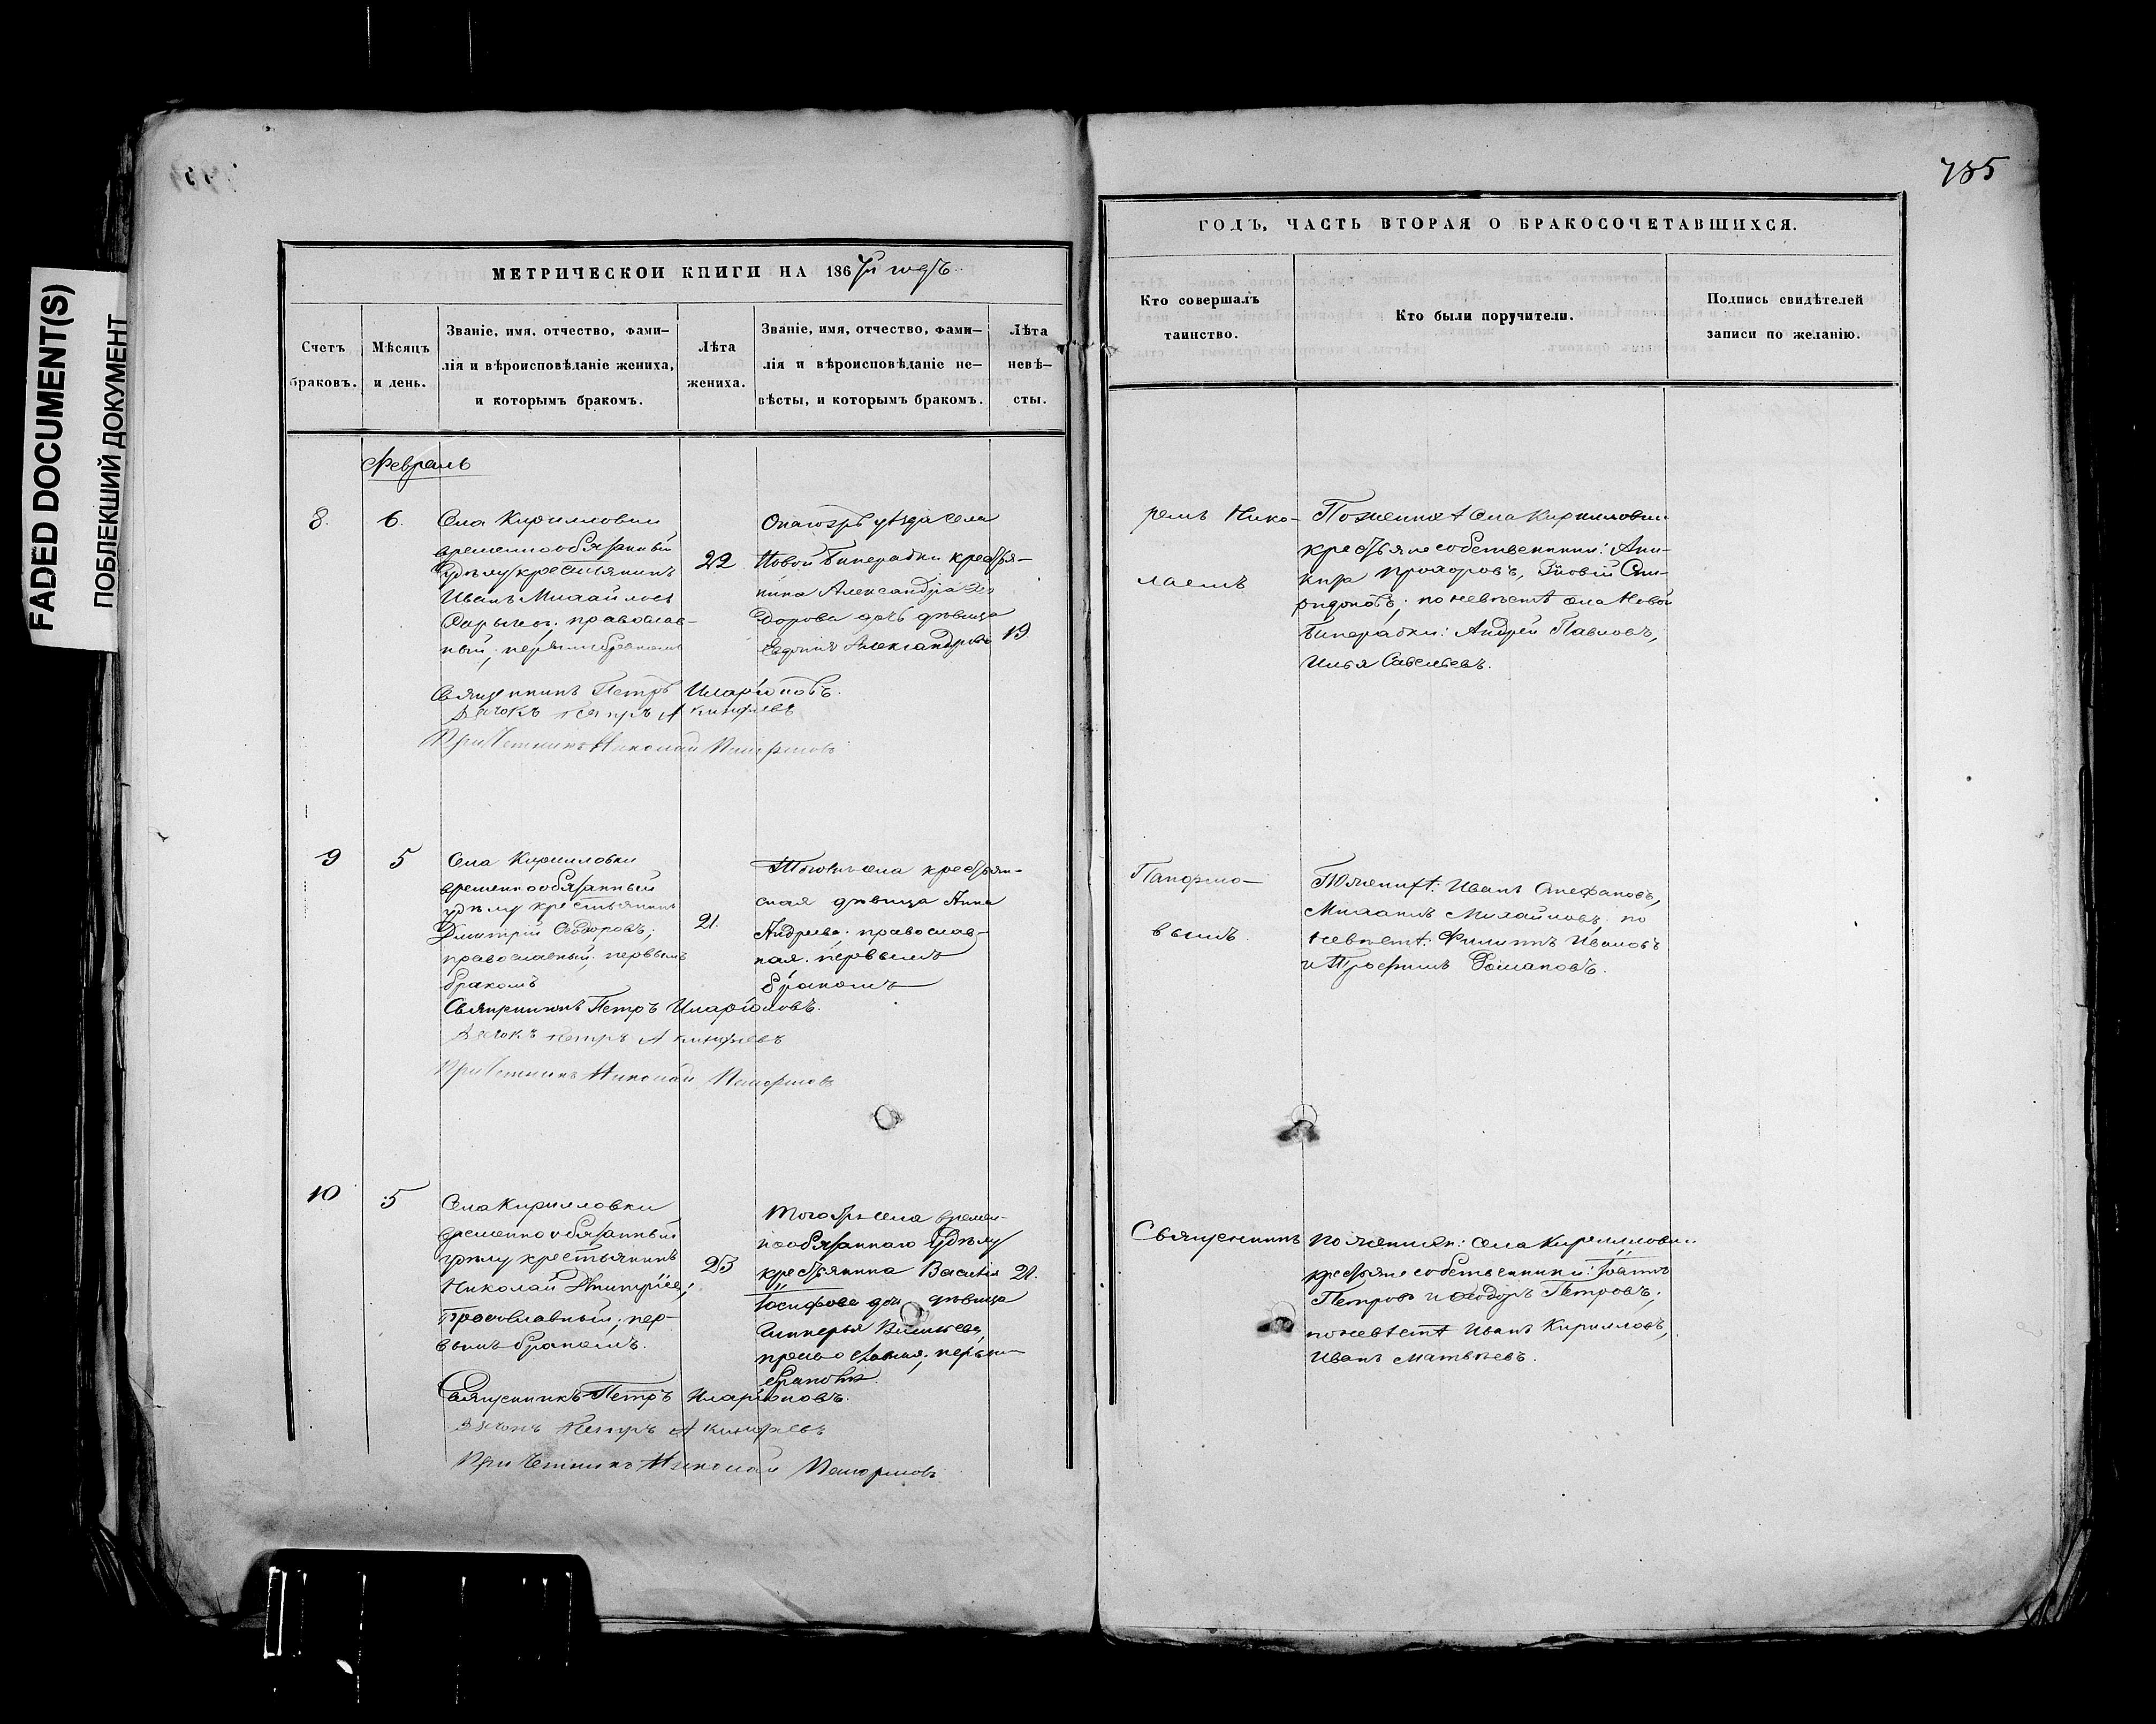 FADED DOCUMENT(S)
ПОБЛЕКШИЙ ДОКУМЕНТ
МЕТРИЧЕСКОЙ КНИГИ НА 1867й годъ.
Счетъ
браковъ.
Мѣсяцъ
и день.
Званіе, имя, отчество, фами–
лія и вѣроисповѣданіе жениха,
и которымъ бракомъ.
Лѣта
жениха.
Званіе, имя, отчество, фами–
лія и вѣроисповѣданіе не–
вѣсты, и которымъ бракомъ.
Лѣта
невѣ–
сты.
Февраль
8.
6.
Села Кирилловки
временнообязанный
удѣлу крестьянинъ
Иванъ Михайловъ
православ-
ный; первымъ бракомъ
22
уѣзда села
Новой Бинарадки кресть-
нина Александра Ѳе
дорова дочь дѣвица
Александрова
19
Священникъ Петръ Иларіоновъ.
Дьячокъ Петръ Акинфіевъ
Причетникъ Николай Панормовъ
9
5
Села Кирилловки
временнообязанный
удѣлу крестьянинъ
Дмитрій Ѳедоровъ;
православный; первымъ
бракомъ
21.
села крестьян-
ская дѣвица Анна
Андреева; православ-
ная. первымъ
бракомъ
Священникъ Петръ Иларіоновъ.
Дьячокъ Петръ Акинфіевъ
Причетникъ Николай Панормовъ
10
5
Села Кирилловки
временнообязанный
удѣлу крестьянинъ
Николай Дмитріевъ;
Православный; пер-
вымъ бракомъ.
23
Того же села времен-
нообязаннаго Удѣлу
крестьянина Василія
Іосифова дочь дѣвица
Васильева,
православная; первымъ
бракомъ.
21.
Священникъ Петръ Иларіоновъ.
Дьячокъ Петръ Акинфіевъ
Причетникъ Николай Панормовъ
735
ГОДЪ, ЧАСТЬ ВТОРАЯ О БРАКОСОЧЕТАВШИХСЯ.
Кто совершалъ
таинство.
Кто были поручители.
Подпись свидѣтелей
записи по желанію.
Нико-
лаемъ
По женихѣ Села Кирилловки
крестьяне собственники: Ани-
кита Прохоровъ, Зиновій Спи-
ридоновъ; по невѣстѣ села Новой
Бинарадки: Андрей Павловъ,
Илья Савельевъ.
Панормо-
вымъ.
По женихѣ: Иванъ Стефановъ,
Михаилъ Михайловъ; по
невѣстѣ: Филиппъ Ивановъ
и Трофимъ Романовъ.
Священникъ
По женихѣ: села Кирилловки
крестьяне собственники: Іоаннъ
Петровъ и Ѳеодоръ Петровъ;
по невѣстѣ Иванъ Кирилловъ,
Иванъ Матвѣевъ.